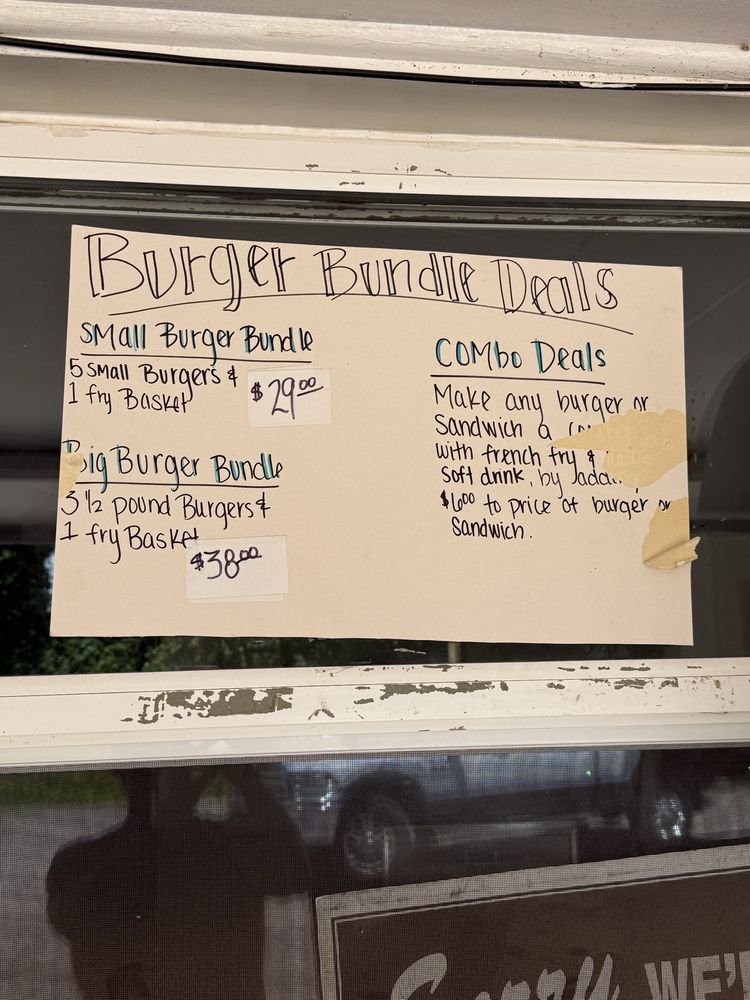 Burger Bundle Deals
Small Burger Bundle
5 small Burgers &
1 fry Basket
$29.00
Big Burger Bundle
3 1/2 pound Burgers &
1 fry Basket
$38.00
Combo Deals
Make any burger or
Sandwich a
with french fry &
soft drink, by
$6.00 to price of burger or
Sandwich.
Sorry WE'